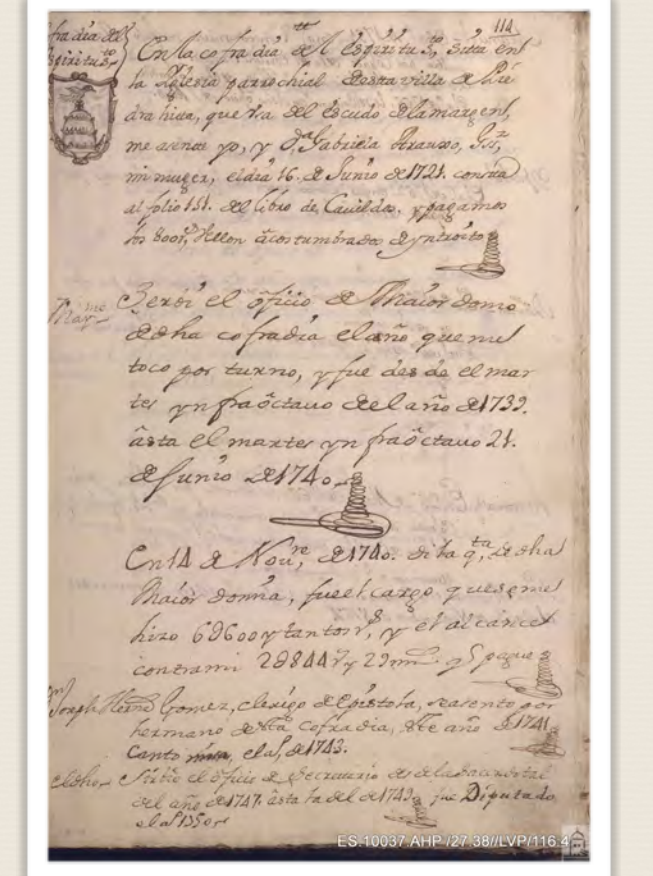 114
Cofradia del
Espiritu Sto
En la cofradia del Espiritu Sto, sitta en
la Yglesia parrochial desta villa de Pie
dra hita, que usa del escudo de la margen,
me asente yo, y Da Gabriela Arauxo,
mi muger, el dia 16. de Junio de 1721. consta
al folio 151. del libro de Cavildos. y pagamos
los 800 rs, Vellon acostumbrados de yntroito
Maymo
Serbi el oficio de Maiordomo
de dha cofradia el año que me
toco por turno, y fue desde el mar
tes ynfraoctauo del año de 1739.
asta el martes ynfraoctauo 21.
de Junio de 1740.
En 14 de Noure, de 1740. di la qta, de dha
Maiordomia, fue el cargo que se me
hizo 6D600 y tantos rs, y el alcance
contra mi 2D844 rs y 29 ms. qe pague
Joseph Hernz Gomez, clerigo de Epistola, se asento por
hermano desta cofradia, este año de 1741
Canto misa, el año, de 1743.
el dho
Sirbio el oficio de Secretario desde la
del año de 1747. asta la del de 1749. fue Diputado
el año 1750
ES.10037.AHP /27.38//LVP/116.4